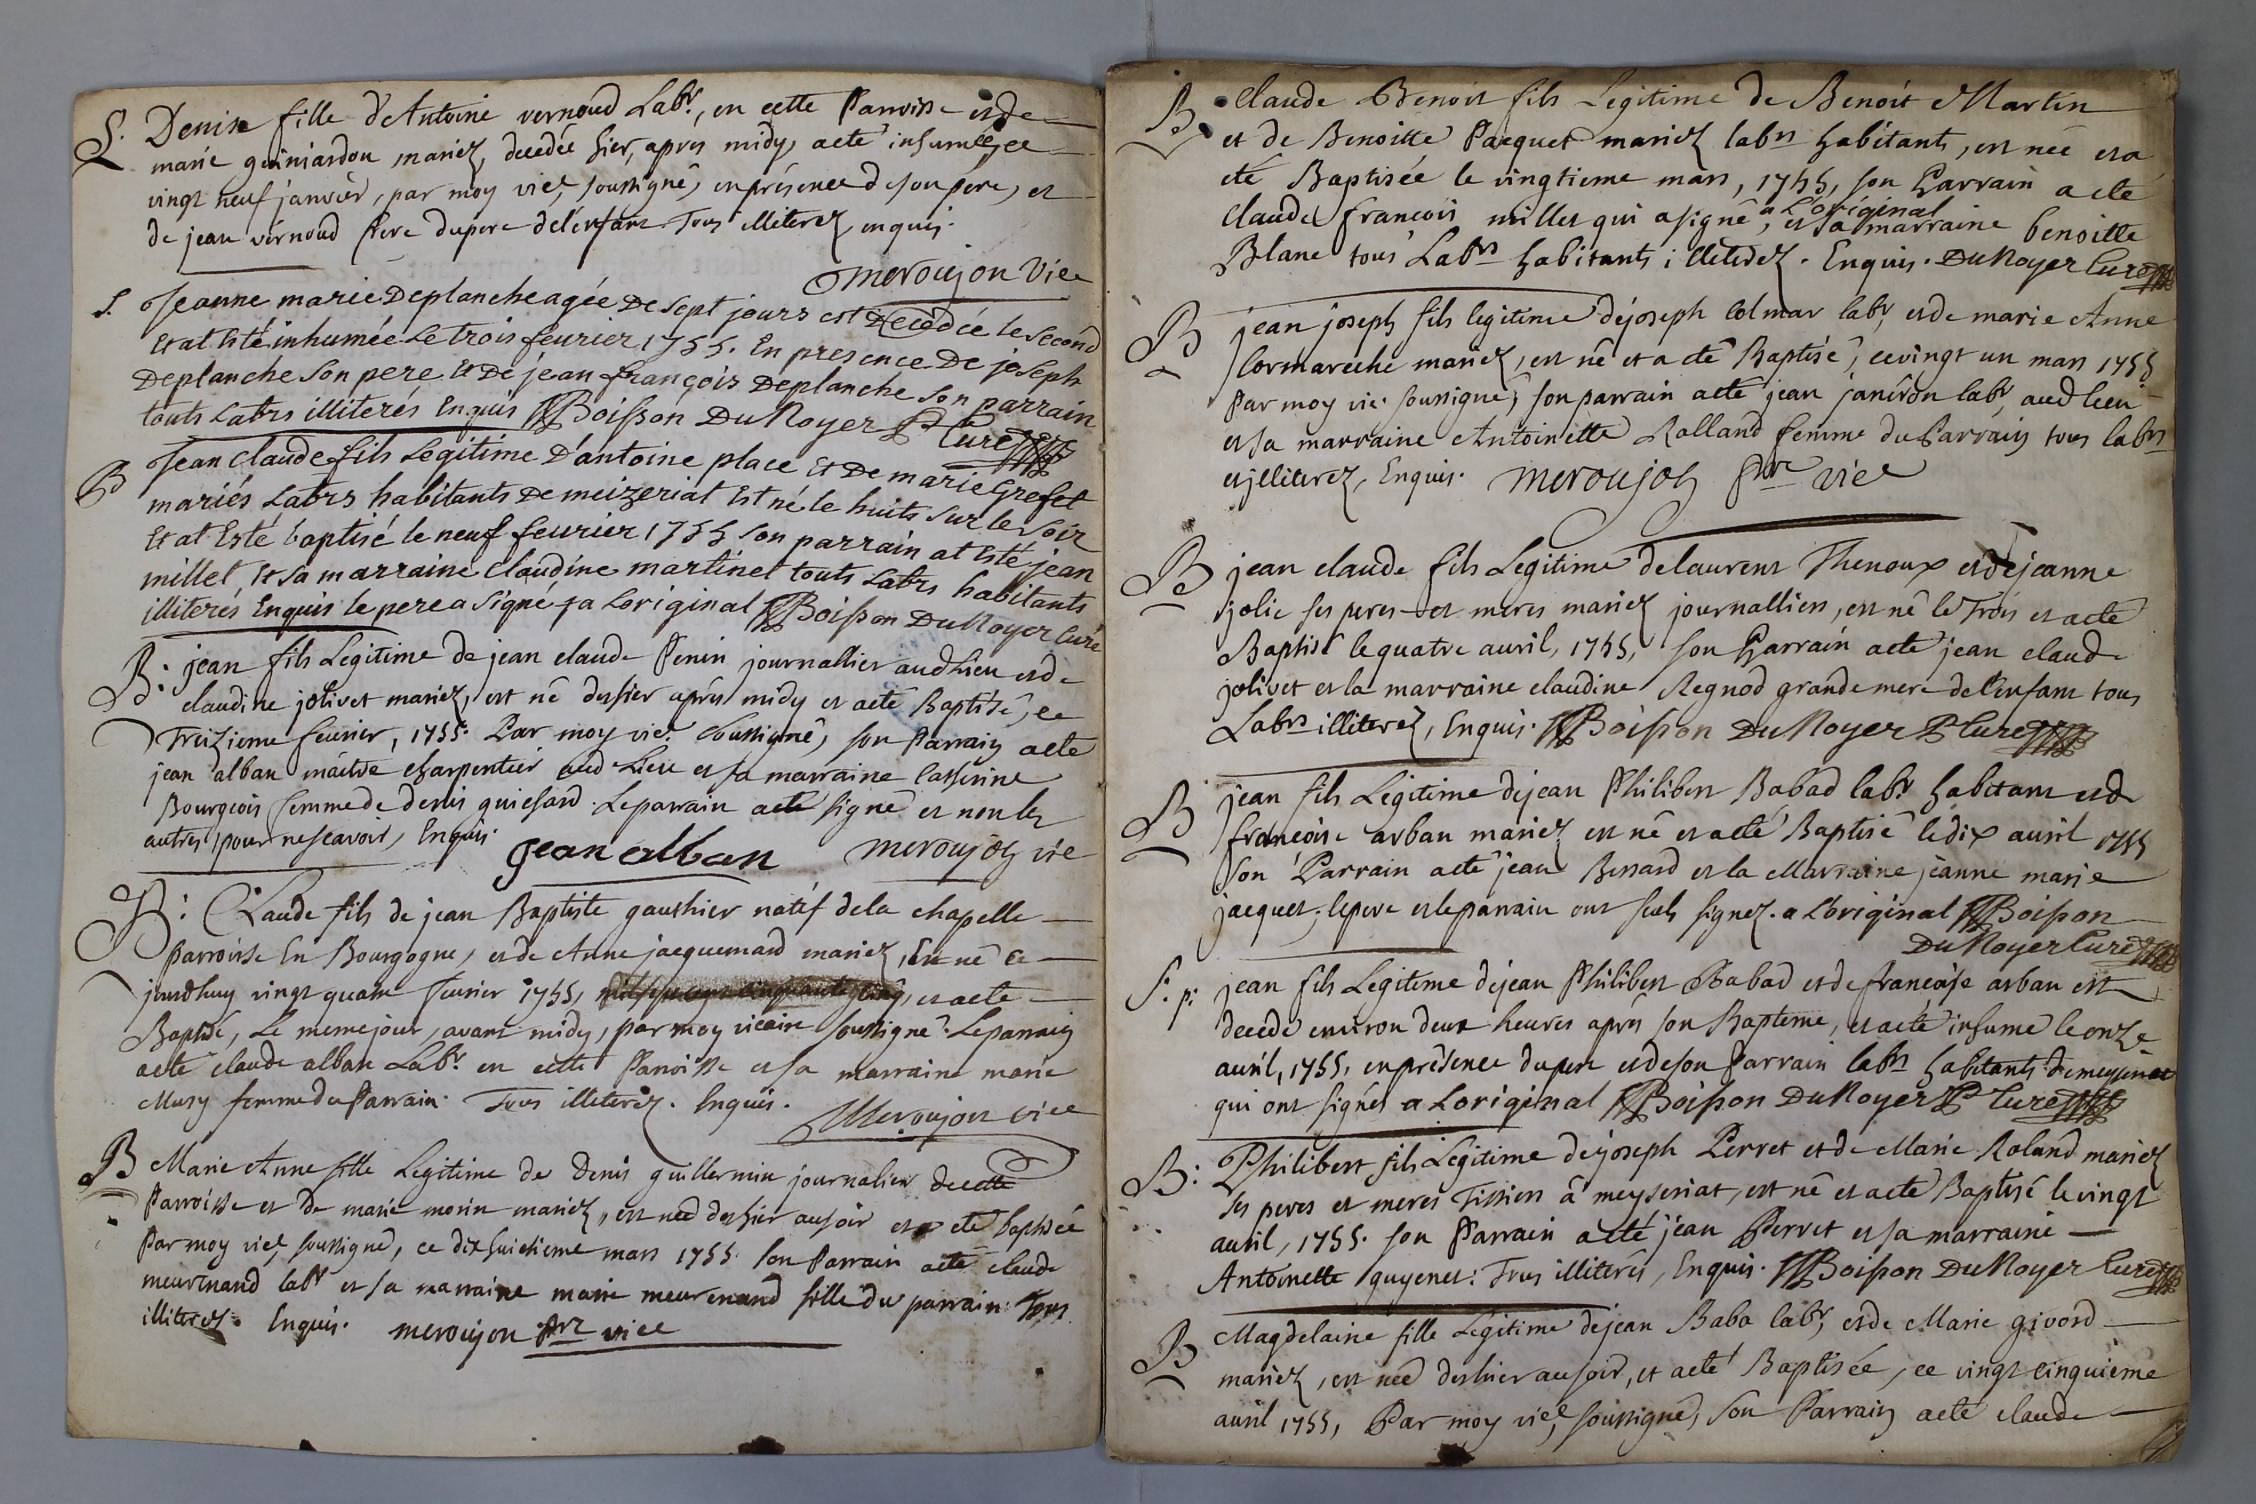 S. Denise fille d'Antoine vernoud Labr, en cette Parroisse et de
marie guiniardon mariez, decedée hier, apres midy, aeté inhumée, ce
vingt neuf janvier, par moy vice soussigné, en présence de son pere, et
de jean vernoud frere du pere de l'enfant Tous illiterez enquis.
meroujon Vice
S. Jeanne marie Deplanche agée De Sept jours est Decedée le Second
Et at Esté inhumée Le trois feurier 1755. En presence De joseph
Deplanche Son pere Et De jean françois Deplanche Son parrain
touts Labrs illiterés Enquis Boisson DuNoyer P Curé
B Jean Claude fils Legitime D'antoine place Et De marie Grefet
mariés Labrs habitants De meizeriat Est né le huits Sur le Soir
Et at Esté baptisé le neuf feurier 1755 Son parrain at Esté jean
millet, Et Sa marraine Claudine martinet touts Labrs habitants
illiterés Enquis le pere a Signé a Loriginal Boisson DuNoyer Curé
B: jean fils Legitime de jean claude Penin journallier aud Lieu et de
claudine jolivet mariez, est né deshier aprés midy et aeté Baptisé, ce
Treizieme feurier, 1755. Par moy vice soussigné, son Parrain aeté
jean alban maitre charpentier aud Lieu et sa marraine Catherine
Bourgeois femme de denis guichard. Le parrain aeté signé et non les
autres pour ne scavoir, Enquis.
jean alban meroujon vice
B: Claude fils de jean Baptiste gauthier natif de la chapelle
parroisse En Bourgogne, et de Anne jacquemard mariez, Est né ce
jourdhuy vingt quatre feurier 1755, et aeté
Baptisé, Le meme jour, avant midy, par moy vicaire soussigné. Le parrain
aeté claude alban Labr. en cette Parroisse et sa marraine marie
Musy femme du Parrain. Tous illiterez. Enquis.
Meroujon vice
B Marie Anne fille Legitime de Denis guillermin journalier de cette
Parroisse et de marie morin mariez, est née deshier au soir et a eté baptisée
Par moy vice soussigné, ce dix huictieme mars 1755. son Parrain aeté claude
meurenand labr et sa marraine marie meurenand fille du parrain: Tous
illiterez. Enquis. meroujon ptre vice
B Claude Benoit fils Legitime de Benoit Martin
et de Benoitte Pacquet mariez labrs habitants, est née et a
eté Baptisée le vingtieme mars, 1755, son Parrain a eté
Claude francois millet qui a signé a L'original, et sa marraine benoitte
Blanc tous Labrs habitants illiterez. Enquis. DuNoyer Curé
B jean joseph fils legitime de joseph Colmar labr, et de marie Anne
Cormareche mariez, est né et a eté Baptisé, ce vingt un mars 1755
Par moy vic. soussigné, son parrain aeté jean janéron labr, aud lieu
et sa marraine Antoinette Rolland femme du Parrain tous labrs
et jlliterez, Enquis. meroujon ptre vice
B jean claude fils Legitime de laurent Thenoux et de jeanne
jolie ses peres et meres mariez journalliers, est né le Trois et aeté
Baptisé le quatre auril, 1755, son Parrain aeté jean claude
jolivet et la marraine claudine Regnod grande mere de l'enfant tous
Labrs illiterez, Enquis. Boisson DuNoyer P Curé
B jean fils Legitime de jean Philibert Babad labr habitant et de
francoise arban mariez est né et aeté Baptisé le dix auril 1755
Son Parrain aeté jean Bernard et la Marraine jeanne marie
jacquet; le pere et le parrain ont seuls signez. a L'original Boisson
DuNoyer Curé
S. p: jean fils Legitime de jean Philibert Babad et de francoise arban est
decedé environ deux heures aprés son Bapteme, et aeté inhumé le onze
auril, 1755, en présence du pere et de son Parrain labrs habitants de meyseriat
qui ont signés a Loriginal Boisson DuNoyer P Curé
B: Philibert fils Legitime de joseph Perret et de Marie Roland mariez
ses peres et meres Tissiers à meyseriat, est né et aeté Baptisé le vingt
auril, 1755. son Parrain aeté jean Perret et sa marraine
Antoinette guyenet: Tous illiterés, Enquis. Boisson DuNoyer Curé
B Magdelaine fille Legitime de jean Baba labr, et de Marie givord
mariez, est née deshier au soir, et aeté Baptisée, ce vingt cinquieme
auril 1755, Par moy vice soussigné, son Parrain aeté claude